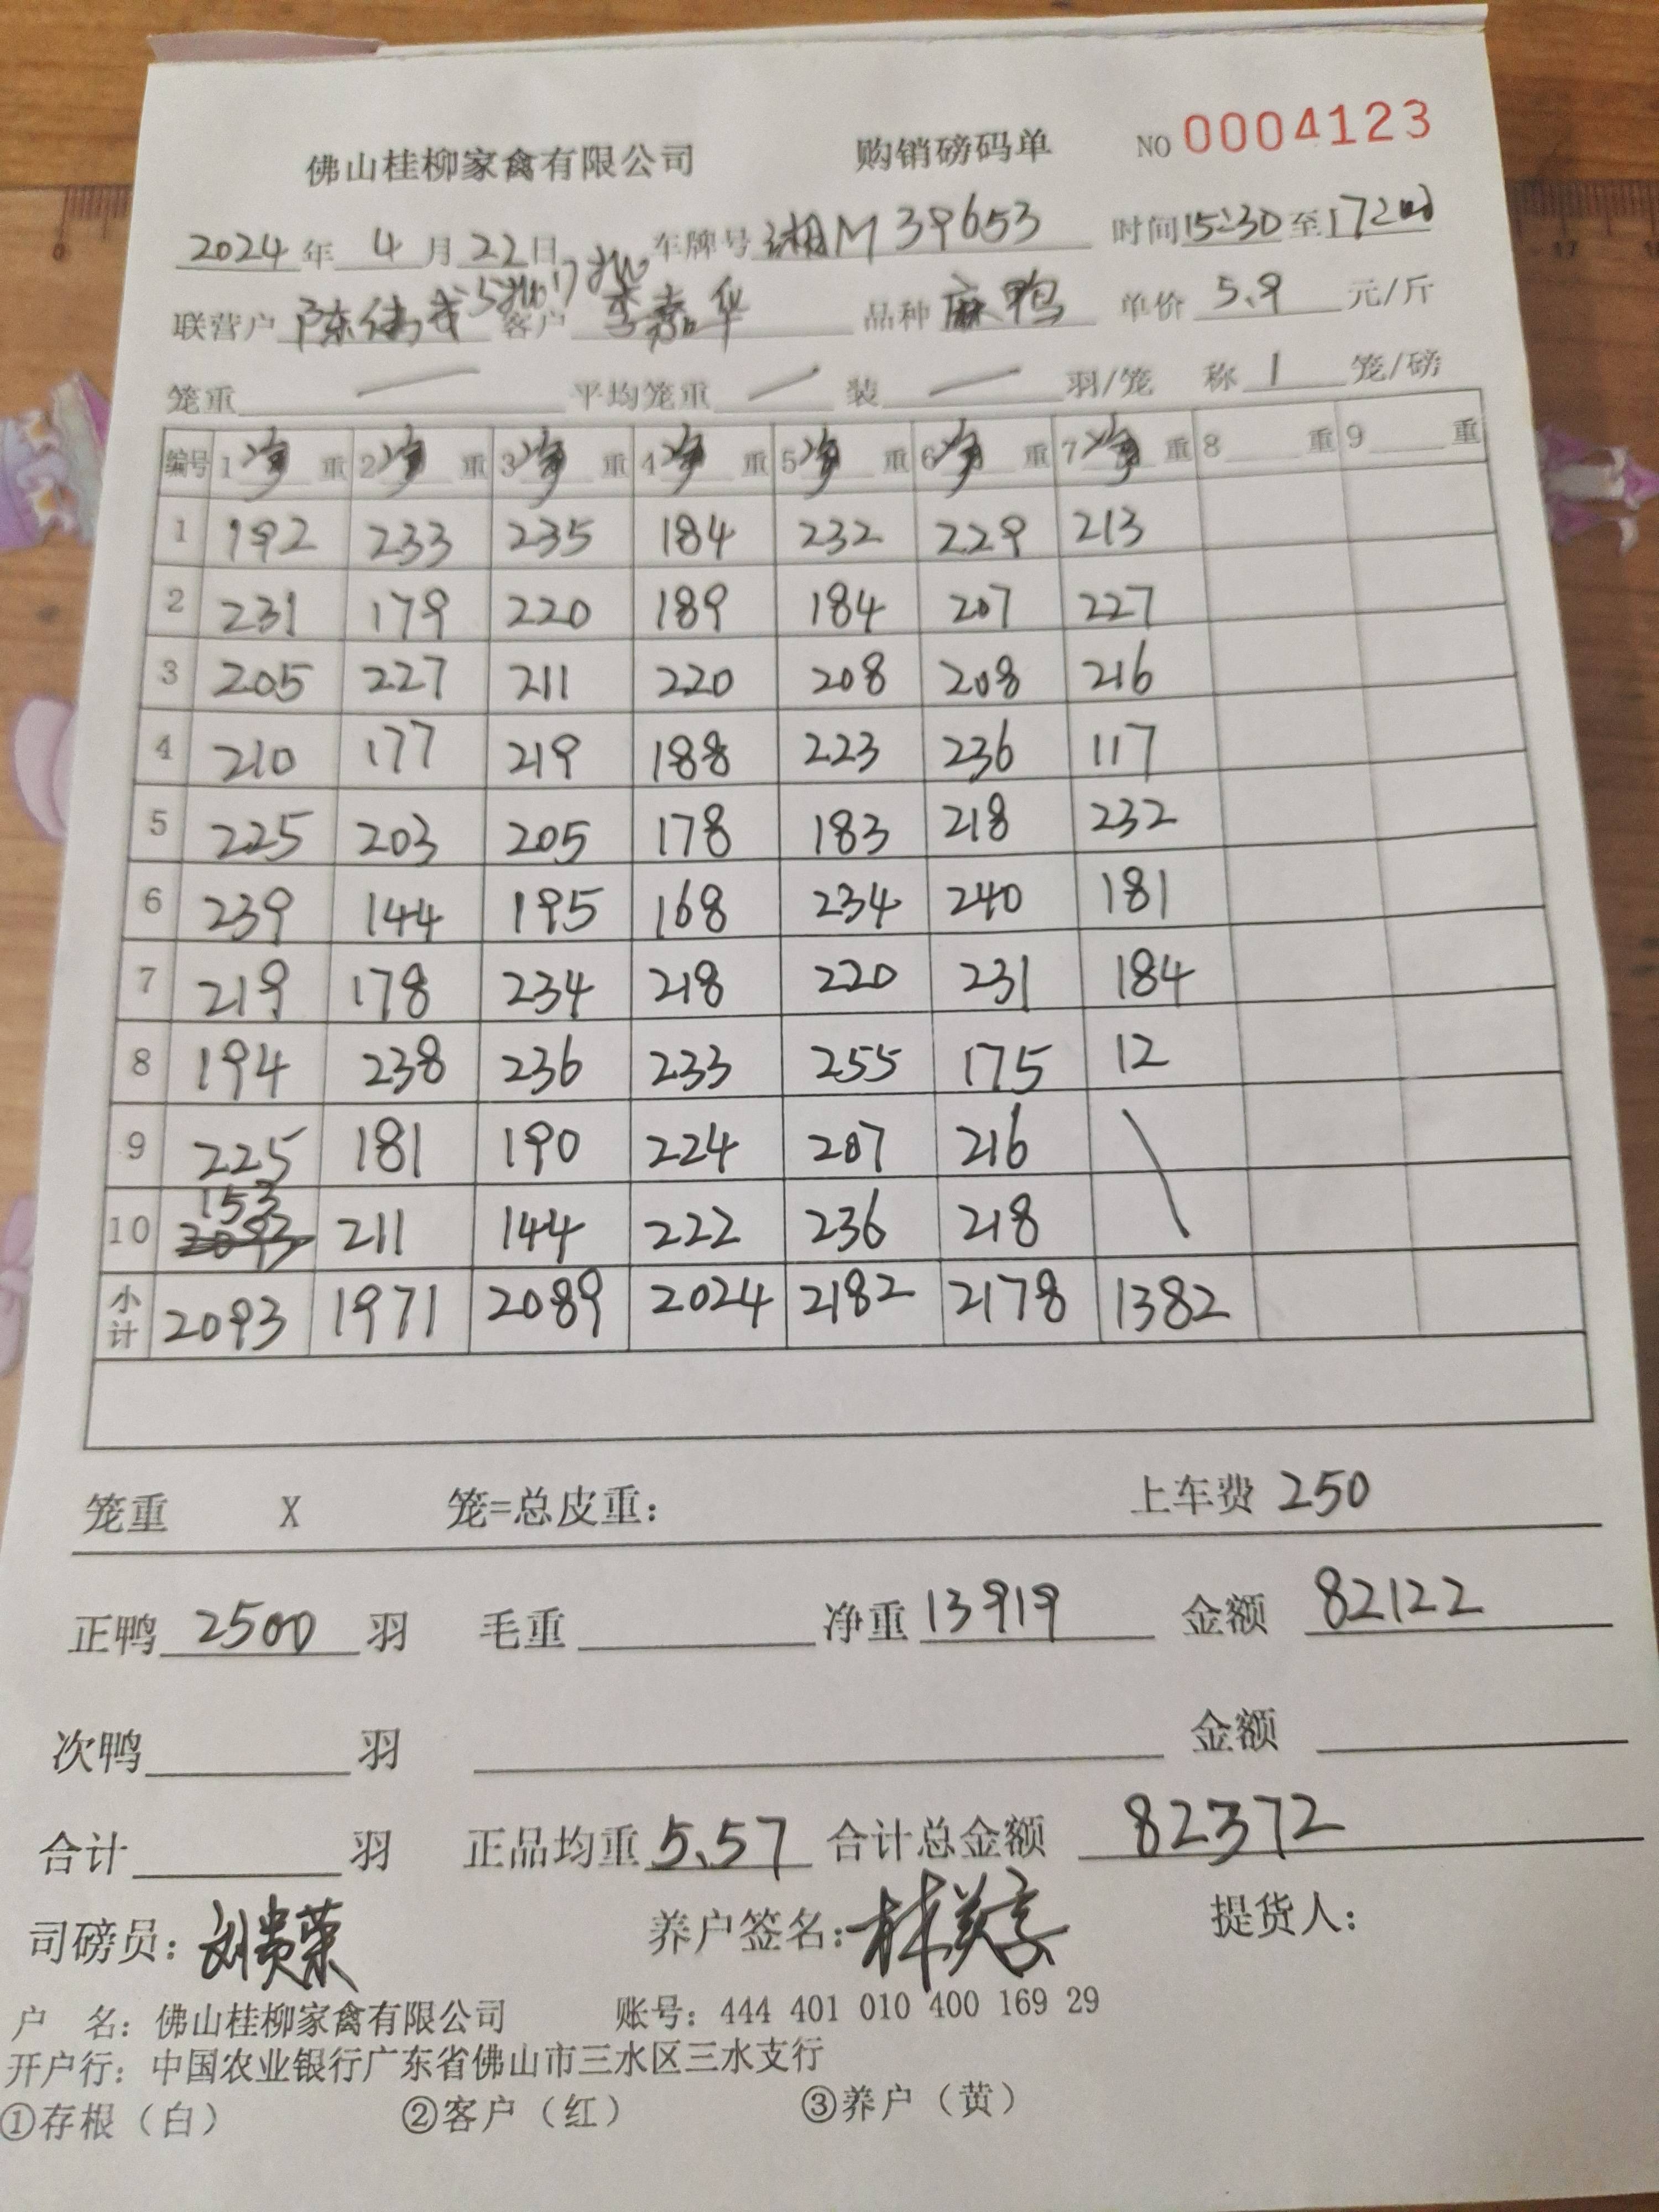 佛山桂柳家禽有限公司 购销磅码单 NO 0004123
2024年 4月22日 车牌号 湘M 39653 时间15:30至17:20
5批17批
联营户 陈 客户 李嘉华 品种 麻鸭 单价 5.9 元/斤
笼重 平均笼重 装 羽/笼 称 1 笼/磅
编号 1净重 2净重 3净重 4净重 5净重 6净重 7净重 8 重 9 重
1 192 233 235 184 232 229 213
2 231 179 220 189 184 207 227
3 205 227 211 220 208 208 216
4 210 177 219 188 223 236 117
5 225 203 205 178 183 218 232
6 239 144 195 168 234 240 181
7 219 178 234 218 220 231 184
8 194 238 236 233 255 175 12
9 225 181 190 224 207 216
10 153 2093 211 144 222 236 218
小计 2093 1971 2089 2024 2182 2178 1382
笼重 X 笼=总皮重: 上车费 250
正鸭 2500 羽 毛重 净重 13919 金额 82122
次鸭 羽 金额
合计 羽 正品均重 5.57 合计总金额 82372
司磅员: 刘贵荣 养户签名: 林 提货人:
户 名: 佛山桂柳家禽有限公司 账号: 444 401 010 400 169 29
开户行: 中国农业银行广东省佛山市三水区三水支行
①存根(白) ②客户(红) ③养户(黄)